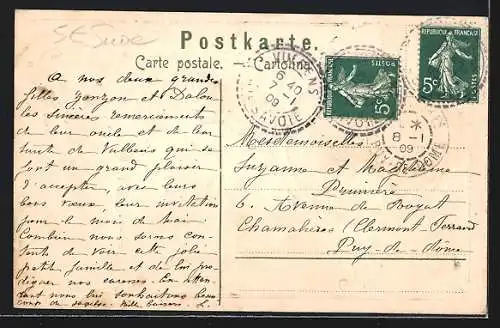 Postkarte.
Carte postale. — Cartolina
A nos deux grandes
filles Zonzon et Dalou
les sincères remerciements
de leur oncle et de leur
tante de Vulbens qui se
font un grand plaisir
d'accepter, avec leurs
bons vœux, leur invitation
pour le mois de Mai
Combien nous serons con
tents de voir cette jolie
petite famille et de lui pro
diguer nos caresses. En atten
dant nous lui souhaitons beau
coup de Mille baisers. L.
VULBENS
6 40
7 - 1
09
SAVOIE
REPUBLIQUE FRANÇAISE
5c
POSTES
REPUBLIQUE FRANÇAISE
5c
POSTES
8 - 1
09
PUY-DE-DOME
Mesdemoiselles
Suzanne et Madeleine
6. Avenue de Royat
Chamalières (Clermont Ferrand
Puy-de-Dôme